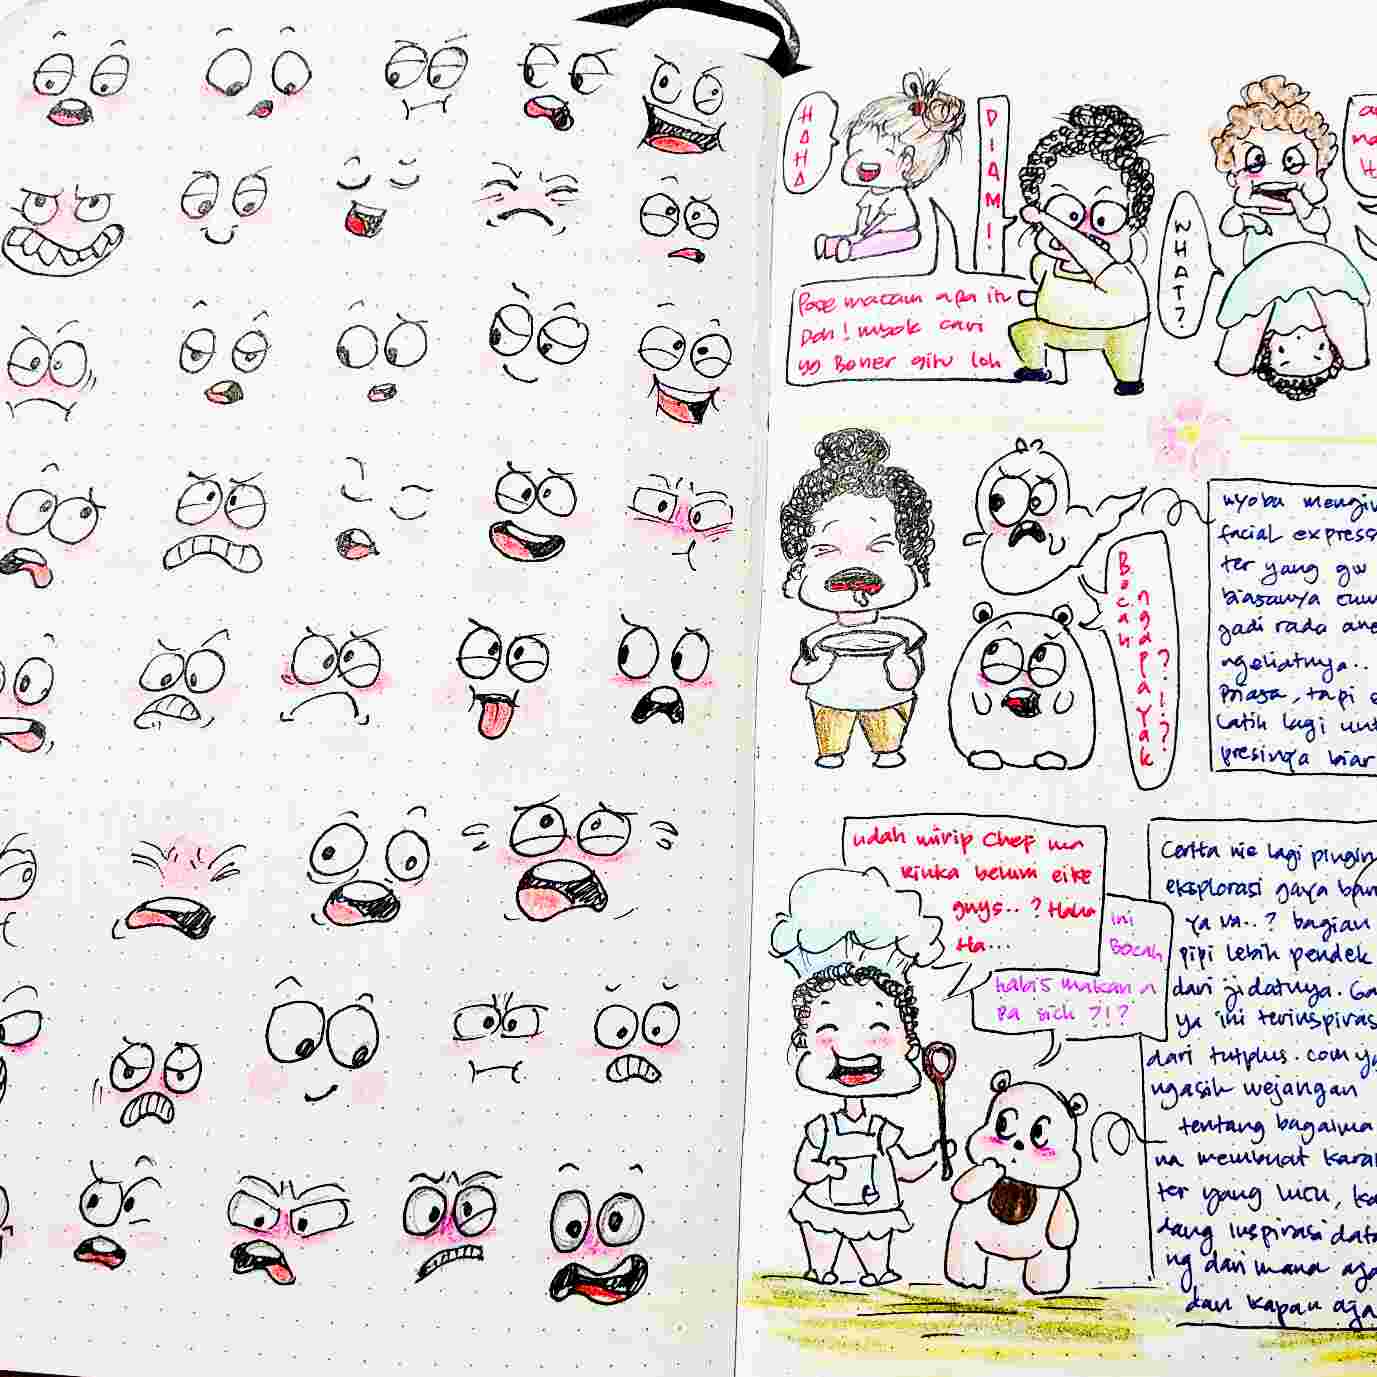 HAHA
DIAM!
WHAT?
Pose macam apa itu
Doh! mbok cari
yg Bener gitu loh
nyoba mengiv
facial express
ter yang gw
biasanya cum
jadi rada ane
ngeliatnya..
Puasa, tapi
Latih lagi unt
presinya biar
Bocah
ngapa yak
?!?
udah mirip Chef
Rinka belum eike
guys..? Haha
Ha...
ini
Bocah
habis makan a
pa sich ?!?
Cerita nie lagi pingin
eksplorasi gaya ban
ya na..? bagian
pipi lebih pendek
dari jidatnya. Ga
ya ini terinspiras
dari tutplus.com ya
ngasih wejangan
tentang bagaima
na membuat karak
ter yang lucu, ka
dang inspirasi data
ng dari mana aja
dan kapan aja